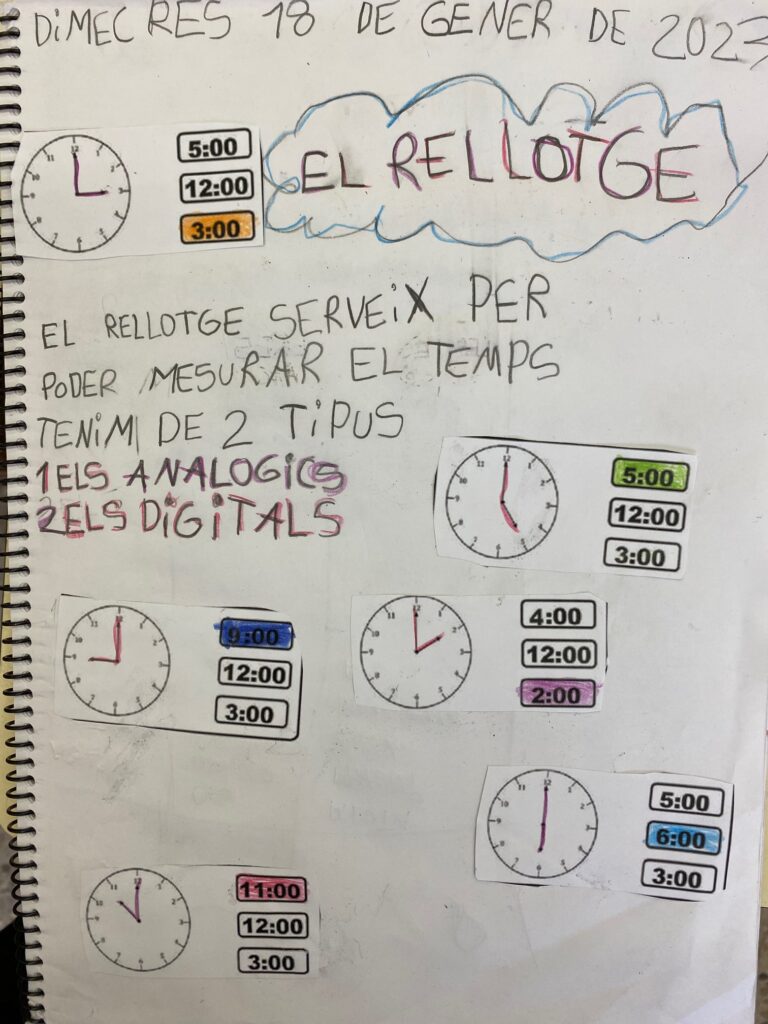 DiMECRES 18 DE GENER DE 2023
5:00
12:00
3:00
EL RELLOTGE
EL RELLOTGE SERVEiX PER
PODER MESURAR EL TEMPS
TENiM DE 2 TiPUS
1 ELS ANALOGiCS
2 ELS DiGiTALS
5:00
12:00
3:00
9:00
12:00
3:00
4:00
12:00
2:00
5:00
6:00
3:00
11:00
12:00
3:00